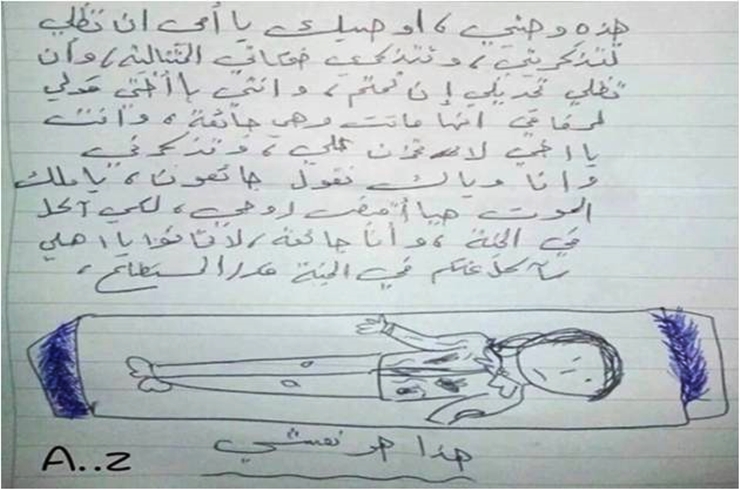 هذه وصيتي، أوصيك يا أمي ان تظلي
تتذكريني، وتتذكري ضحكاتي المتتالية، وأن
تظلي تحديلي إن نمتم، وانتي يا أختي قولي
لرفاقي انها ماتت وهي جائعة، وأنت
يا اخي لا تحزن علي، وتذكرني
وانا وياك نقول جائعون، يا ملك
الموت هيا أقبض روحي، لكي آكل
في الجنة، وأنا جائعة، لا تخافوا يا اهلي
سآكل عنكم في الجنة قدر المستطاع،
هذا هو نعشي
A..Z